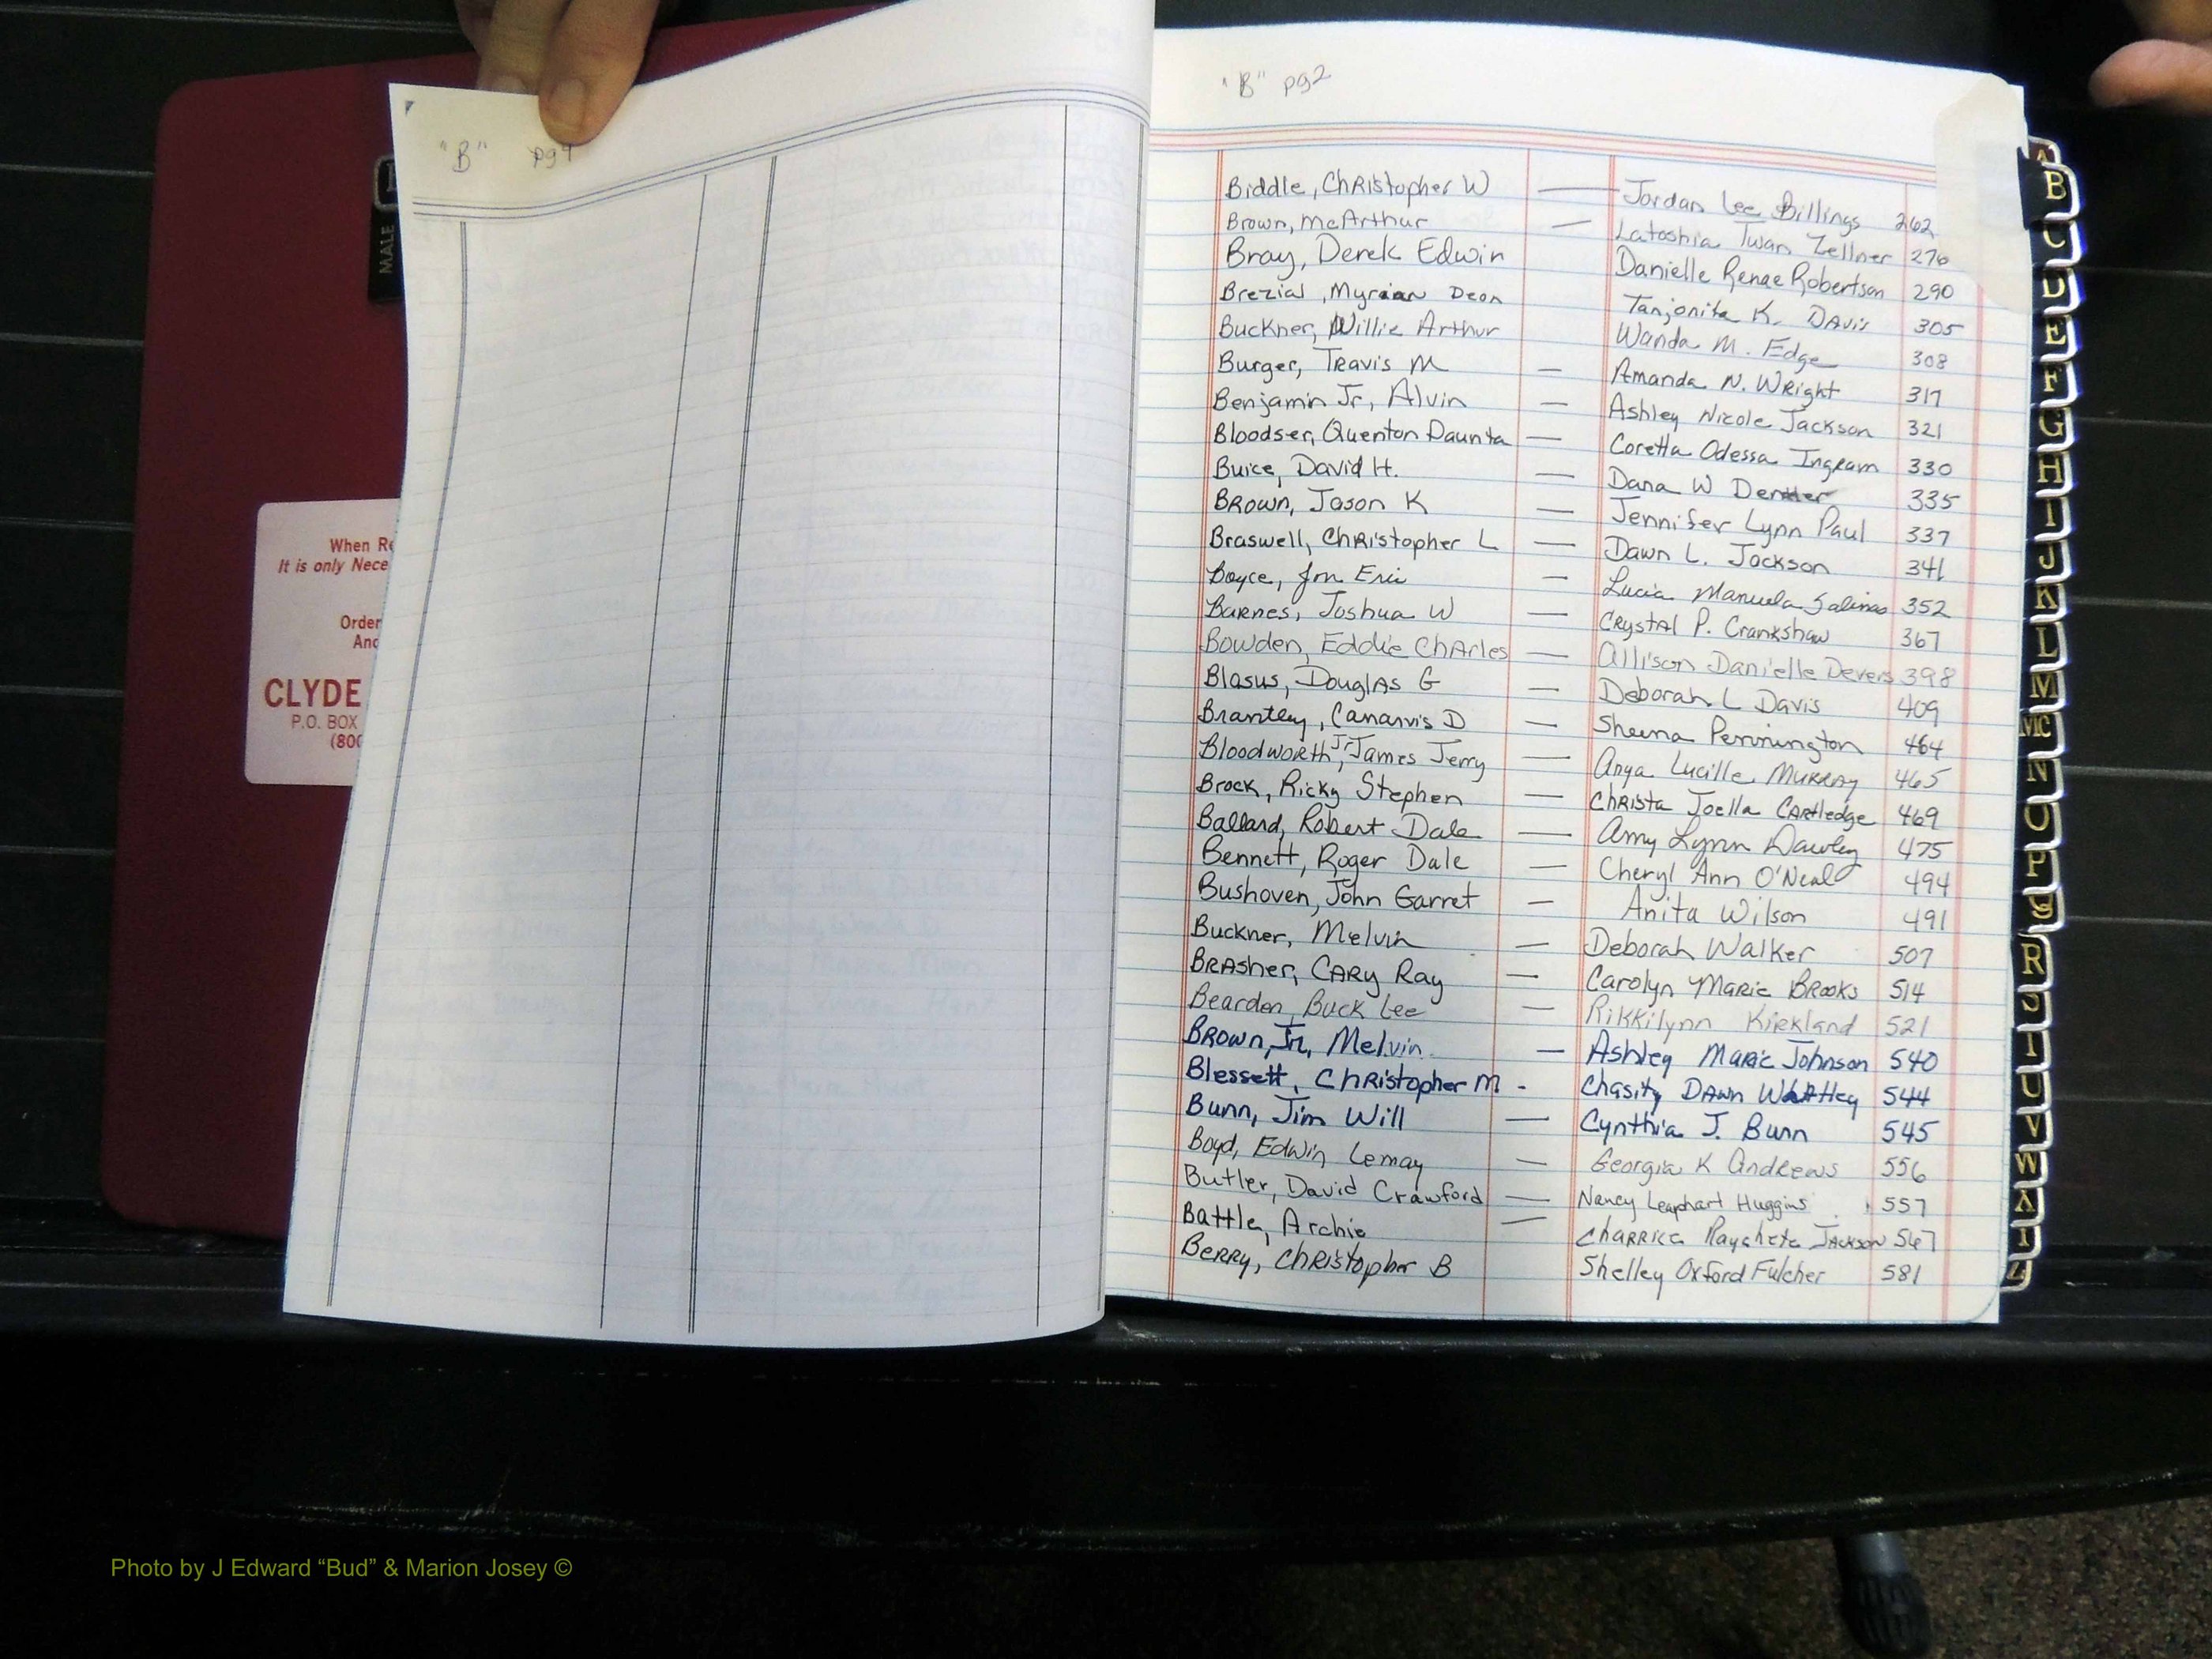 "B" pg4
MALE
When Re
It is only Nece
Order
And
CLYDE
P.O. BOX
(800
"B" pg2
Biddle, Christopher W — Jordan Lee Billings 262
Brown, McArthur — Latoshia Twan Zellner 276
Bray, Derek Edwin Danielle Renae Robertson 290
Brezial, Myrian Deon Tanjonita K. Davis 305
Buckner, Willie Arthur Wanda M. Edge 308
Burger, Travis M — Amanda N. Wright 317
Benjamin Jr, Alvin — Ashley Nicole Jackson 321
Bloodser, Quenton Daunta — Coretta Odessa Ingram 330
Buice, David H. — Dana W 335
Brown, Jason K — Jennifer Lynn Paul 337
Braswell, Christopher L — Dawn L. Jackson 341
Boyce, Jon Eric — Lucia Manuela Salinas 352
Barnes, Joshua W — Crystal P. Crankshaw 367
Bowden, Eddie Charles — Allison Danielle Devers 398
Blasus, Douglas G — Deborah L Davis 409
Brantley, Canarvis D — Sheena Pennington 464
Bloodworth, Jr, James Jerry — Anya Lucille Murray 465
Brock, Ricky Stephen — Christa Joella Cartledge 469
Ballard, Robert Dale — Amy Lynn Dawley 475
Bennett, Roger Dale — Cheryl Ann O'Neal 494
Bushoven, John Garret — Anita Wilson 491
Buckner, Melvin — Deborah Walker 507
Brasher, Cary Ray — Carolyn Marie Brooks 514
Bearden, Buck Lee — Rikkilynn Kirkland 521
Brown, Jr, Melvin — Ashley Marie Johnson 540
Blessett, Christopher M - Chasity Dawn Whatley 544
Bunn, Jim Will — Cynthia J. Bunn 545
Boyd, Edwin Lemay — Georgia K Andrews 556
Butler, David Crawford — Nancy Leaphart Huggins 557
Battle, Archie — Charrica Jackson 567
Berry, Christopher B Shelley Oxford Fulcher 581
A
B
C
D
E
F
G
H
I
J
K
L
M
MC
N
O
P
Q
R
S
T
U
V
W
X
Y
Z
Photo by J Edward “Bud” & Marion Josey ©